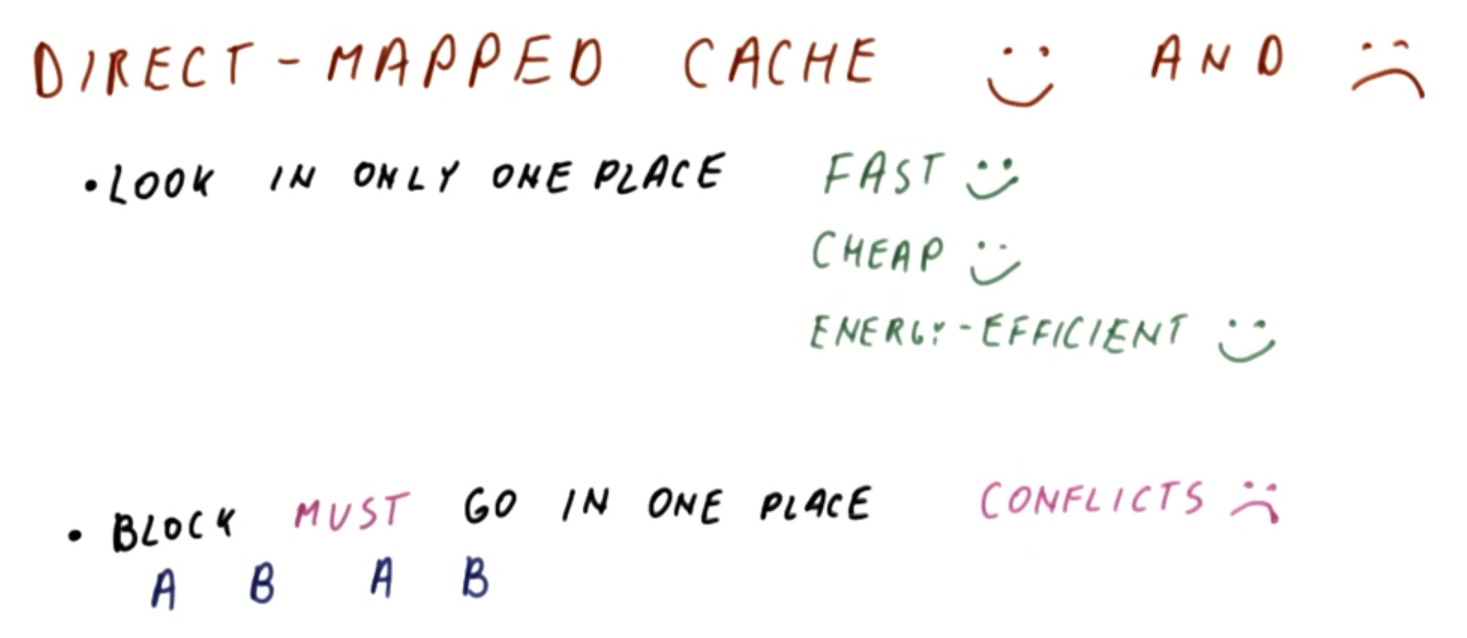 DIRECT-MAPPED CACHE AND
• LOOK IN ONLY ONE PLACE FAST
CHEAP
ENERGY-EFFICIENT
• BLOCK MUST GO IN ONE PLACE CONFLICTS
A B A B